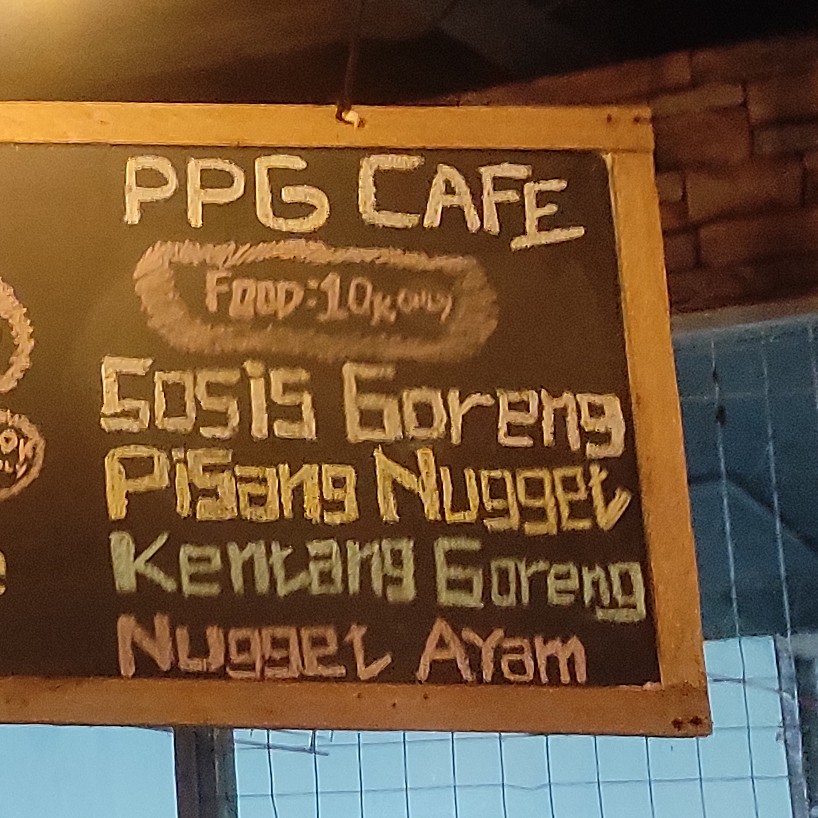 PPG CAFE
Food: 10K ONLY
Sosis Goreng
Pisang Nugget
Kentang Goreng
Nugget Ayam